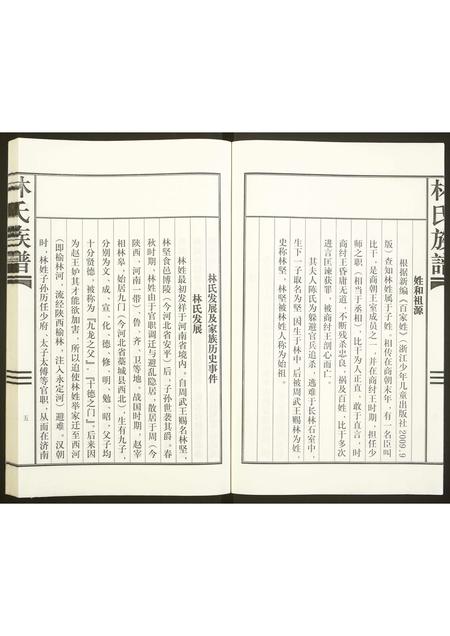 林氏族譜
姓和祖源
根据新编《百家姓》(浙江少年儿童出版社2009.9
版)查知林姓属于子姓。相传在商朝末年,有一名臣叫
比干,是商朝王室成员之一,并在商纣王时期,担任少
师之职(相当于丞相),比干为人正直,敢于直言,时
商纣王昏庸无道,不断残杀忠良,祸及百姓,比干多次
进言匡谏获罪,被商纣王剖心而亡。
其夫人陈氏为躲避官兵追杀,逃难于长林石室中,
生下一子取名为坚,因生于林中,后被周武王赐林为姓,
史称林坚,林坚被林姓人称为始祖
林氏发展及家族历史事件
林氏发展
林姓最初发祥于河南省境内。自周武王赐名林坚,
林坚食邑博陵(今河北省安平)后,子孙世袭其爵。春
秋时期,林姓由于官职调迁与避乱隐居,散居于周(今
陕西、河南一带)、鲁、齐、卫等地,战国时期,赵宰
相林皋,始居九门(今河北省藁城县西北),生有九子,
分别为文、成、宣、化、德、修、明、勉、昭,父子均
十分贤德,被称为『九龙之父』、『十德之门』,后来因
为赵王妒其才能欲加害,所以迫使林姓举家迁至西河
(即榆林河,流经陕西榆林,注入永定河)避难。汉朝
时,林姓子孙历任少府、太子太傅等官职,从而在济南
林氏族譜
五